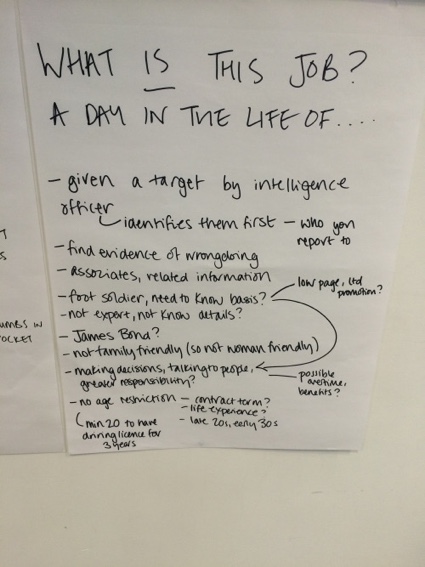 WHAT IS THIS JOB?
A DAY IN THE LIFE OF....
- given a target by intelligence
officer
identifies them first - who you
report to
- find evidence of wrongdoing
- associates, related information
- foot soldier, need to know basis?
low page, ltd
promotion?
- not expert, not know details?
- James Bond?
- not family friendly (so not woman friendly)
- making decisions, talking to people,
greater responsibility?
possible
overtime,
benefits?
- no age restriction - contract term?
- life experience?
- late 20s, early 30s
min 20 to have
driving licence for
3 years
T
S
UMBS IN
OCKET